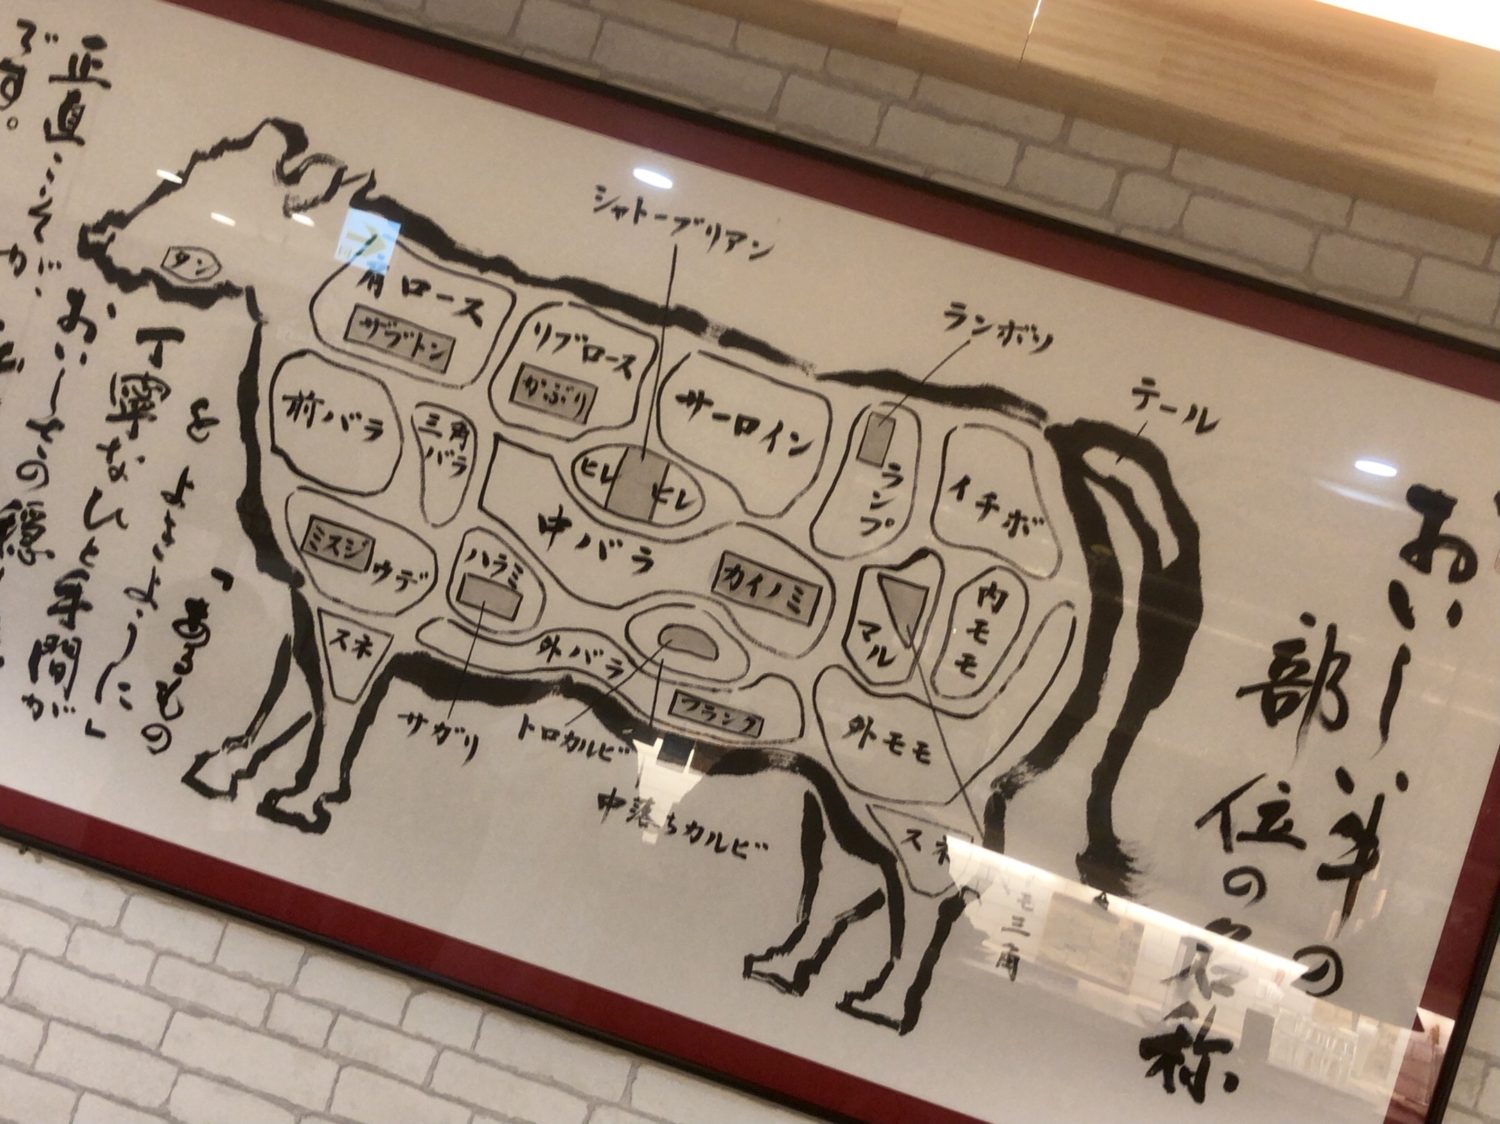 おいしい牛の
部位の名称
シャトーブリアン
ランボソ
テール
タン
肩ロース
ザブトン
リブロース
かぶり
サーロイン
ランプ
イチボ
前バラ
三角バラ
ヒレ
ヒレ
中バラ
カイノミ
マル
内モモ
ミスジ
ウデ
ハラミ
スネ
外バラ
フランク
外モモ
サガリ
トロカルビ
中落ちカルビ
スネ
三角
丁寧なひと手間が
おいしさの
正直…そ
です。